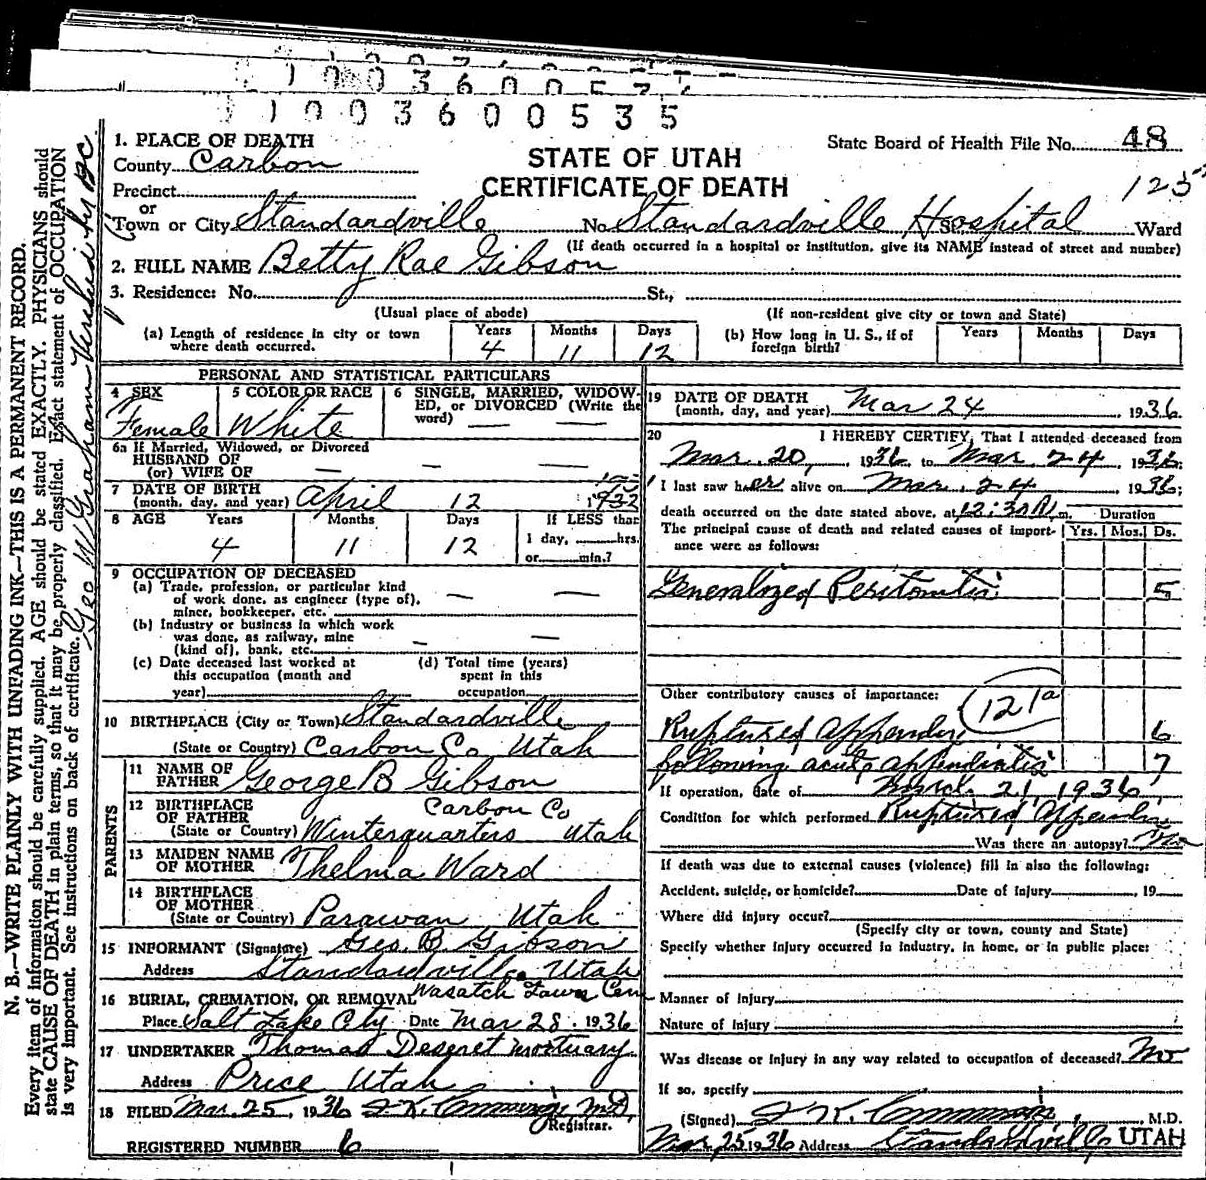 1003600577
1003600535
1. PLACE OF DEATH
County Carbon
Precinct
or
Town or City Standardville
STATE OF UTAH
CERTIFICATE OF DEATH
State Board of Health File No. 48
125
No. Standardville Hospital St., Ward
(If death occurred in a hospital or institution, give its NAME instead of street and number)
2. FULL NAME Betty Rae Gibson
3. Residence: No. St.,
(Usual place of abode) (If non-resident give city or town and State)
(a) Length of residence in city or town where death occurred. Years 4 Months 11 Days 12
(b) How long in U. S., if of foreign birth? Years Months Days
PERSONAL AND STATISTICAL PARTICULARS
4 SEX Female
5 COLOR OR RACE White
6 SINGLE, MARRIED, WIDOWED, or DIVORCED (Write the word) — —
6a If Married, Widowed, or Divorced
HUSBAND OF
(or) WIFE OF — — —
7 DATE OF BIRTH
(month, day, and year) April 12 1932
8 AGE Years 4 Months 11 Days 12
If LESS than
1 day, hrs.
or min.?
9 OCCUPATION OF DECEASED
(a) Trade, profession, or particular kind
of work done, as engineer (type of),
miner, bookkeeper, etc. — —
(b) Industry or business in which work
was done, as railway, mine
(kind of), bank, etc. — —
(c) Date deceased last worked at
this occupation (month and
year)
(d) Total time (years)
spent in this
occupation
10 BIRTHPLACE (City or Town) Standardville
(State or Country) Carbon Co Utah
PARENTS
11 NAME OF
FATHER George B Gibson
12 BIRTHPLACE
OF FATHER Carbon Co
(State or Country) Winterquarters Utah
13 MAIDEN NAME
OF MOTHER Thelma Ward
14 BIRTHPLACE
OF MOTHER
(State or Country) Parawan Utah
15 INFORMANT (Signature) Geo. B Gibson
Address Standardville Utah
16 BURIAL, CREMATION, OR REMOVAL Wasatch Lawn Cem
Place Salt Lake City Date Mar 28. 1936
17 UNDERTAKER Thomas Deseret Mortuary
Address Price Utah
18 FILED Mar. 25, 1936 M.D.
Registrar.
REGISTERED NUMBER 6
19 DATE OF DEATH
(month, day, and year) Mar 24, 1936
20 I HEREBY CERTIFY, That I attended deceased from
Mar. 20, 1936 to Mar. 24 1936;
I last saw her alive on Mar. 24 1936;
death occurred on the date stated above, at 12:30 A m. Duration
The principal cause of death and related causes of importance were as follows: Yrs. Mos. Ds.
Generalized Peritonitis 5
Other contributory causes of importance: 121a
Ruptured Appendix 6
following acute appendicitis 7
If operation, date of March 21, 1936
Condition for which performed Ruptured Appendix
Was there an autopsy? No
If death was due to external causes (violence) fill in also the following:
Accident, suicide, or homicide? Date of injury , 19
Where did injury occur?
(Specify city or town, county and State)
Specify whether injury occurred in industry, in home, or in public place:
Manner of injury
Nature of injury
Was disease or injury in any way related to occupation of deceased? No
If so, specify
(Signed) , M.D.
Mar. 25 1936 Address Standardville, UTAH
N. B.—WRITE PLAINLY WITH UNFADING INK—THIS IS A PERMANENT RECORD.
Every item of information should be carefully supplied. AGE should be stated EXACTLY. PHYSICIANS should
state CAUSE OF DEATH in plain terms, so that it may be properly classified. Exact statement of OCCUPATION
is very important. See instructions on back of certificate.
Geo W Graham